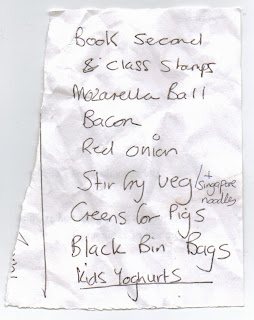 Book Second
& Class Stamps
Mozarella Ball
Bacon
Red onion
Stir fry veg/+ Singapore noodles
Greens for Pigs
Black Bin Bags
Kids Yoghurts